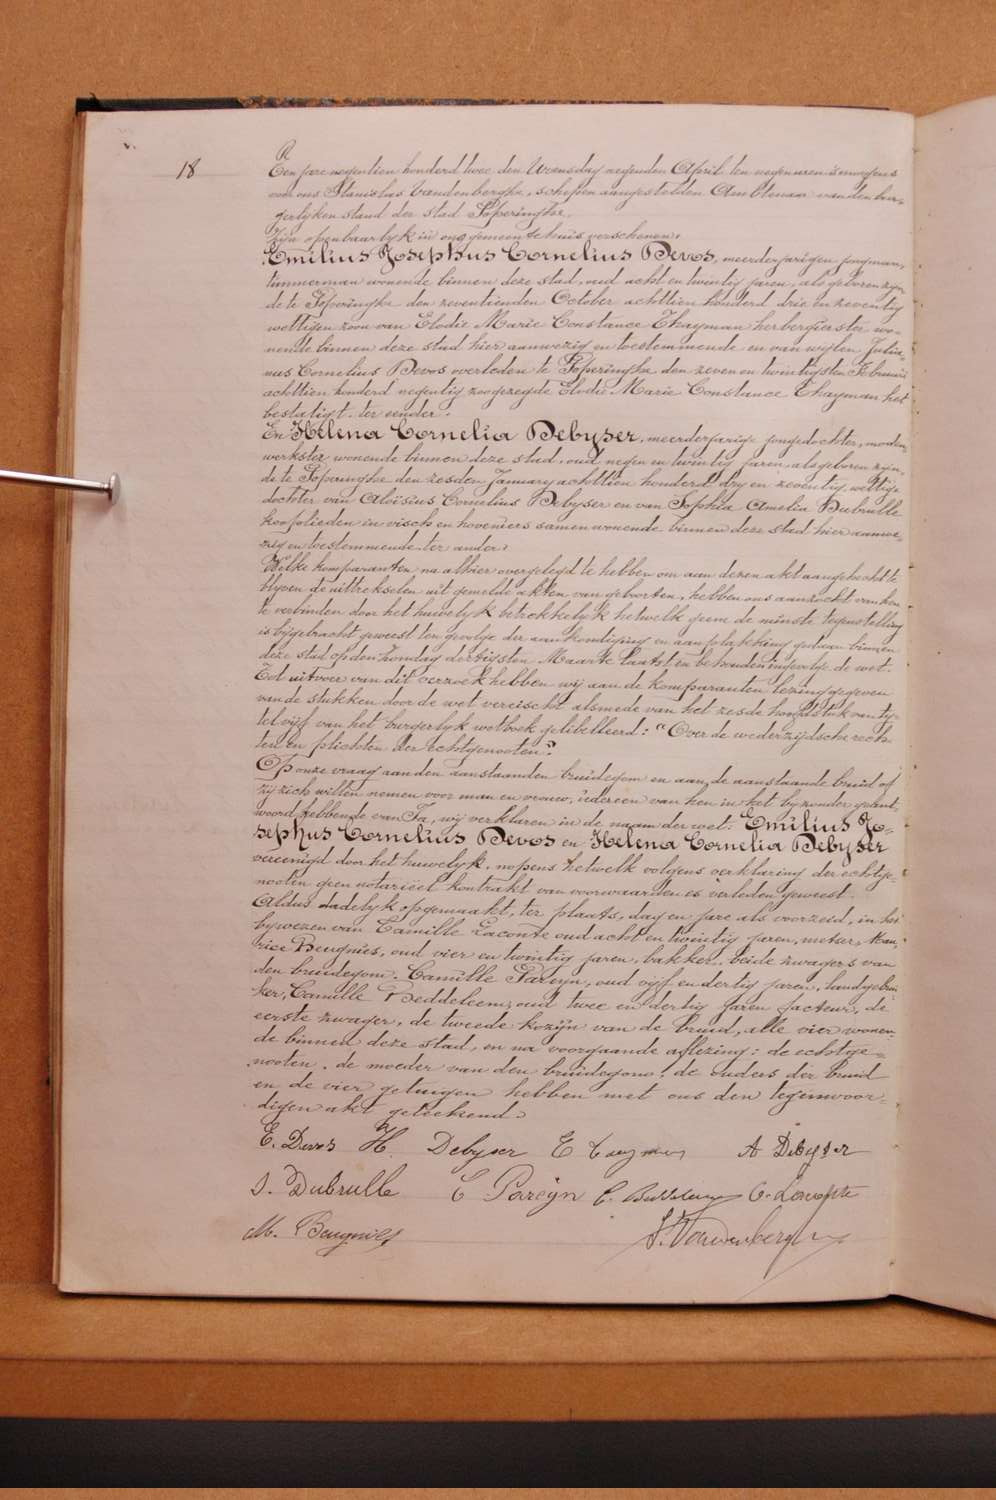 18
Een jare negentien honderd twee den Woensdag negenden April ten negen uren 's morgens
voor ons Stanislas Vandenberghe, schepen aangestelden Ambtenaar van den bur-
gerlyken stand der stad Poperinghe.
Zyn openbaarlyk in ons gemeentehuis verschenen:
Emilius Josephus Cornelius Devos, meerderjarigen jongman,
timmerman wonende binnen deze stad, oud acht en twintig jaren, als geboren zyn-
de te Poperinghe den zeventienden October achttien honderd drie en zeventig
wettigen zoon van Elodie Marie Constance Thayman herbergierster wo-
nende binnen deze stad hier aanwezig en toestemmende en van wylen Julia-
nus Cornelius Devos overleden te Poperinghe den zeven en twintigsten Februari
achttien honderd negentig zoogezegde Elodie Marie Constance Thayman het
bestatigt. ter eender.
En Helena Cornelia Debyser, meerderjarige jongedochter, moden
werkster wonende binnen deze stad, oud negen en twintig jaren, als geboren zyn-
de te Poperinghe den zesden January achttien honderd dry en zeventig, wettige
dochter van Aloïsius Cornelius Debyser en van Sophia Amelia Dubrulle
koopliëden in visch en hoveniers samen wonende binnen deze stad hier aanwe-
zig en toestemmende ter ander.
Welke komparanten na alhier overgelegd te hebben om aan dezen akt aangehecht te
blyven de uittrekselen uit gemelde akten van geboorten, hebben ons aanzocht van hen
te verbinden door het huwelyk betrekkelyk hetwelk geene de minste tegenstelling
is bygebracht geweest ten gevolge der aankondiging en aanplakking gedaan binnen
deze stad op den Zondag dertigsten Maarte laatst en behouden ingevolge de wet.
Tot uitvoer van dit verzoek hebben wij aan de komparanten lezing gegeven
van de stukken door de wet vereischt alsmede van het zesde hoofdstuk van ty-
tel vijf van het burgerlyk wetboek getibelleerd: "Over de wederzijdsche rech-
ten en plichten der echtgenooten".
Op onze vraag aan den aanstaanden bruidegom en aan de aanstaande bruid of
zy zich willen nemen voor man en vrouw, iedereen van hen in het byzonder geant-
woord hebbende van Ja, wij verklaren in de naam der wet: Emilius Jo-
sephus Cornelius Devos en Helena Cornelia Debyser
vereenigd door het huwelyk, nopens hetwelk volgens verklaring der echtge-
nooten geen notariëel kontrakt van voorwaarden is verleden geweest.
Aldus dadelyk opgemaakt, ter plaats, dag en jare als voorzeid, in het
bywezen van Camille Laconte oud acht en twintig jaren, metser, Mau-
rice Beugnies, oud vier en twintig jaren, bakker, beide zwagers van
den bruidegom, Camille Pareyn, oud vijf en dertig jaren, landgebrui-
ker, Camille Beddeleem, oud twee en dertig jaren facteur, de
eerste zwager, de tweede kozyn van de bruid, alle vier wonen-
de binnen deze stad, en na voorgaande aflezing: de echtge-
nooten, de moeder van den bruidegom, de ouders der bruid
en de vier getuigen hebben met ons den tegenwoor-
digen akt geteekend.
E. Devos H. Debyser E A Debyser
S. Dubrulle C Pareyn C.
M. Beugnies S. Vandenberghe